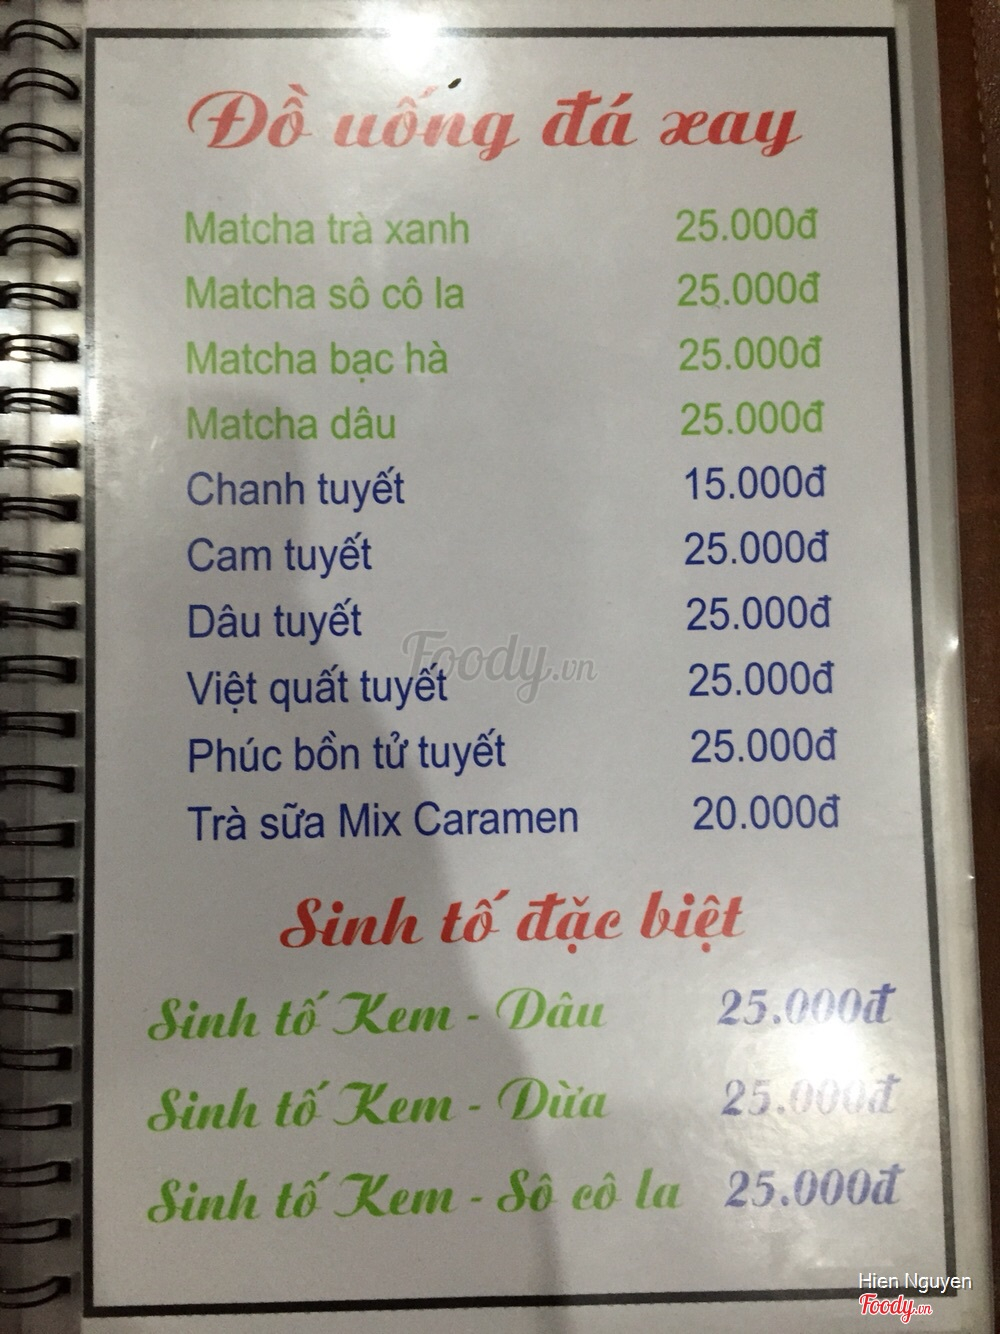 Đồ uống đá xay
Matcha trà xanh 25.000đ
Matcha sô cô la 25.000đ
Matcha bạc hà 25.000đ
Matcha dâu 25.000đ
Chanh tuyết 15.000đ
Cam tuyết 25.000đ
Dâu tuyết 25.000đ
Foody.vn
Việt quất tuyết 25.000đ
Phúc bồn tử tuyết 25.000đ
Trà sữa Mix Caramen 20.000đ
Sinh tố đặc biệt
Sinh tố Kem - Dâu 25.000đ
Sinh tố Kem - Dừa 25.000đ
Sinh tố Kem - Sô cô la 25.000đ
Hien Nguyen
Foody.vn